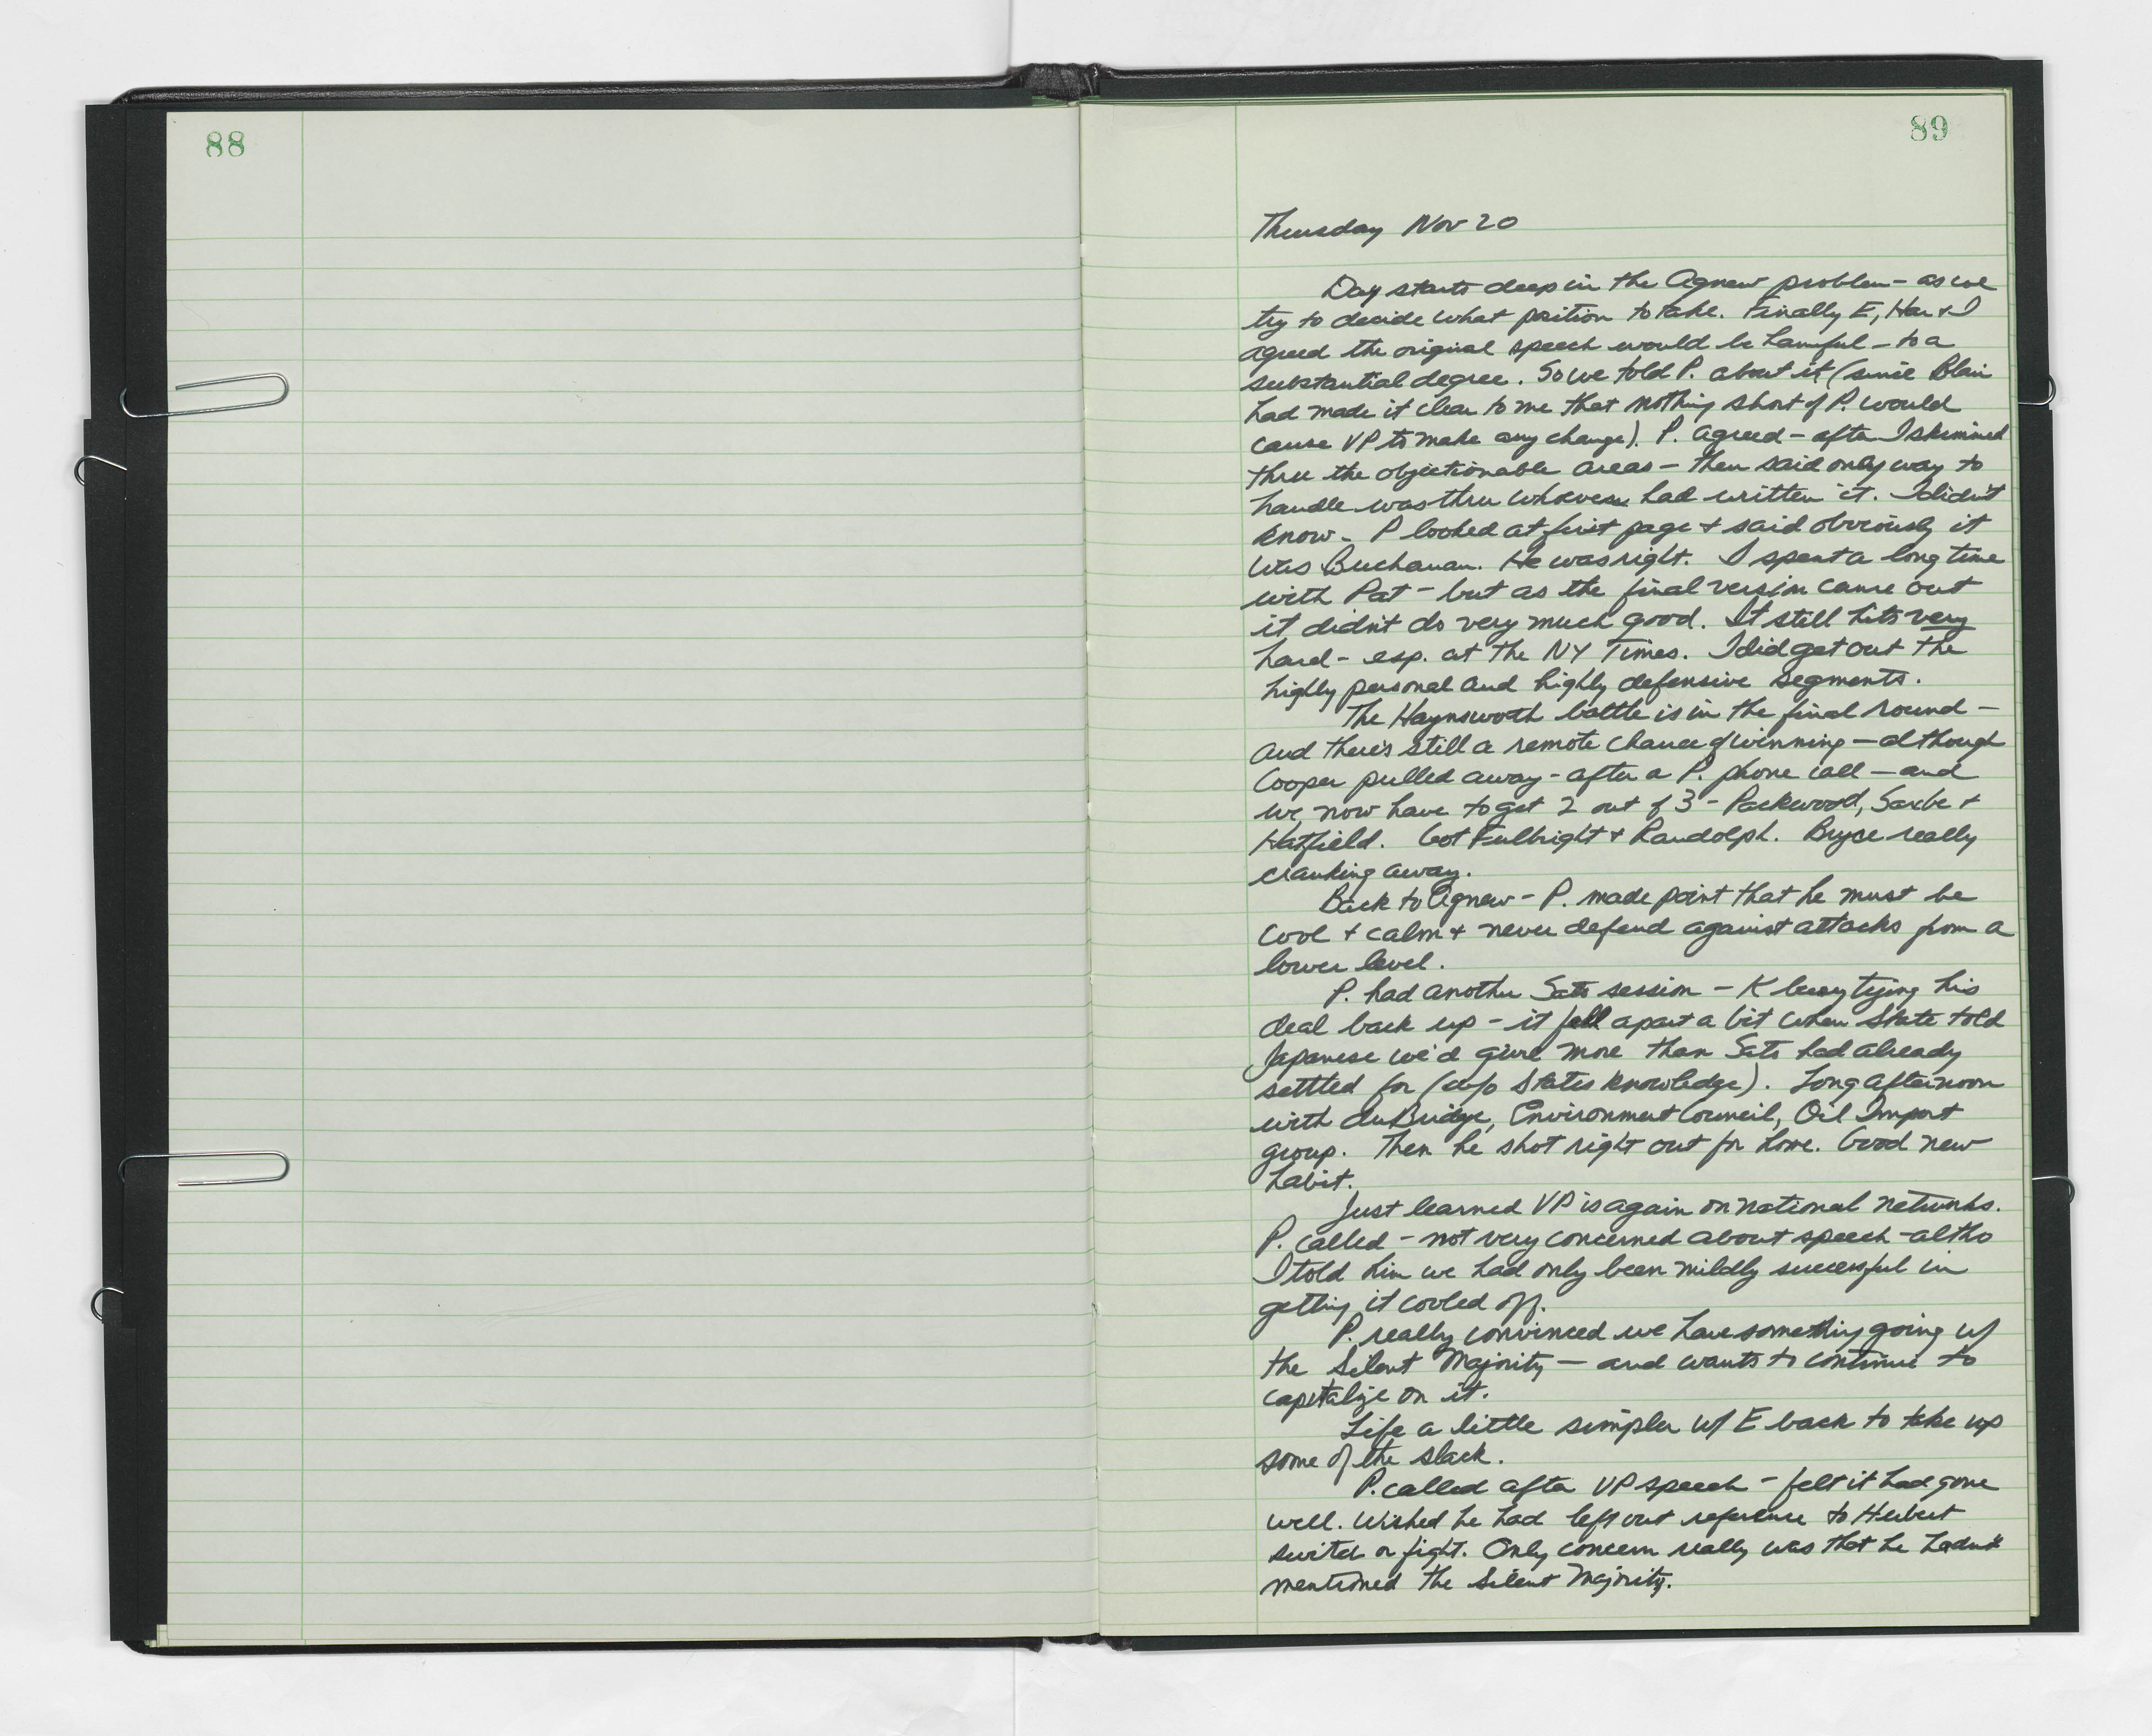 88
89
Thursday Nov 20
Day starts deep in the Agnew problem - as we
try to decide what position to take. Finally E, Har + I
agreed the original speech would be harmful - to a
substantial degree. So we told P. about it (since Blair
had made it clear to me that nothing short of P. would
cause VP to make any change). P. agreed - after I skimmed
thru the objectionable areas - then said only way to
handle was thru whoever had written it. I didn't
know - P looked at first page + said obviously it
was Buchanan. He was right. I spent a long time
with Pat - but as the final version came out
it didn't do very much good. It still hits very
hard - esp. at the NY Times. I did get out the
highly personal and highly defensive segments.
The Haynsworth battle is in the final round -
and there's still a remote chance of winning - although
Cooper pulled away - after a P. phone call - and
we now have to get 2 out of 3 - Packwood, Saxbe +
Hatfield. Got Fulbright + Randolph. Bryce really
cranking away.
Back to Agnew - P. made point that he must be
cool + calm + never defend against attacks from a
lower level.
P. had another Sato session - K busy tying his
deal back up - it fell apart a bit when State told
Japanese we'd give more than Sato had already
settled for (w/o States knowledge). Long afternoon
with duBridge, Environment Council, Oil Import
group. Then he shot right out for home. Good new
habit.
Just learned VP is again on national networks.
P. called - not very concerned about speech - altho
I told him we had only been mildly successful in
getting it cooled off.
P. really convinced we have something going w/
the Silent Majority - and wants to continue to
capitalize on it.
Life a little simpler w/ E back to take up
some of the slack.
P. called after VP speech - felt it had gone
well. Wished he had left out reference to Herbert
switch or fight. Only concern really was that he hadn't
mentioned the Silent Majority.